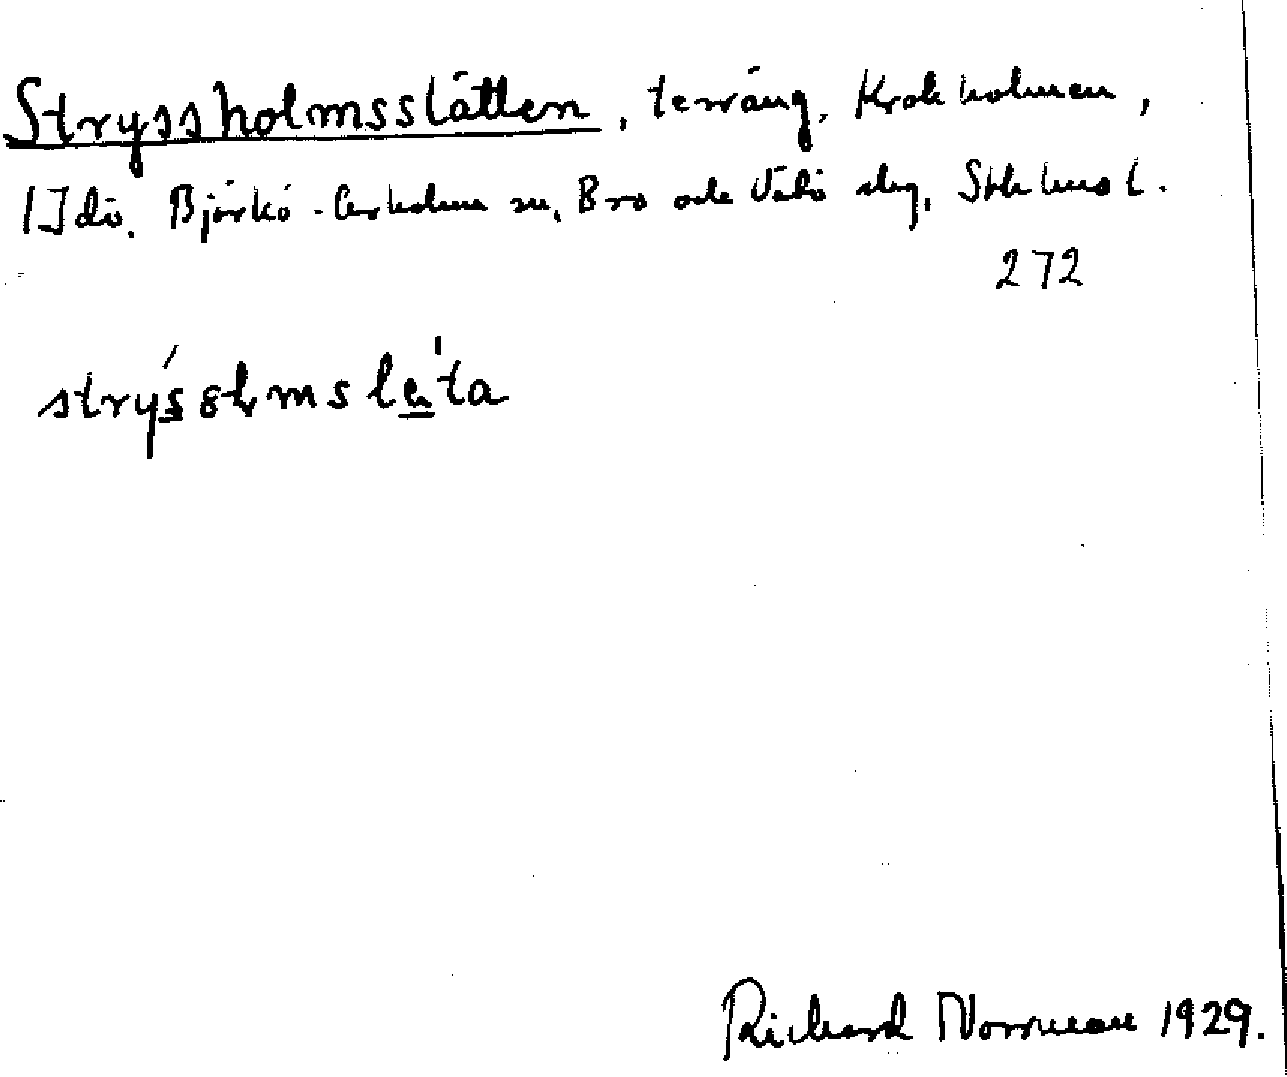 Stryssholmsslätten, terräng, Krokholmen,
1] Idö. Björkö-Arholma sn, Bro och Vätö skg, Sthlms l.
272
Richard Norrman 1929.